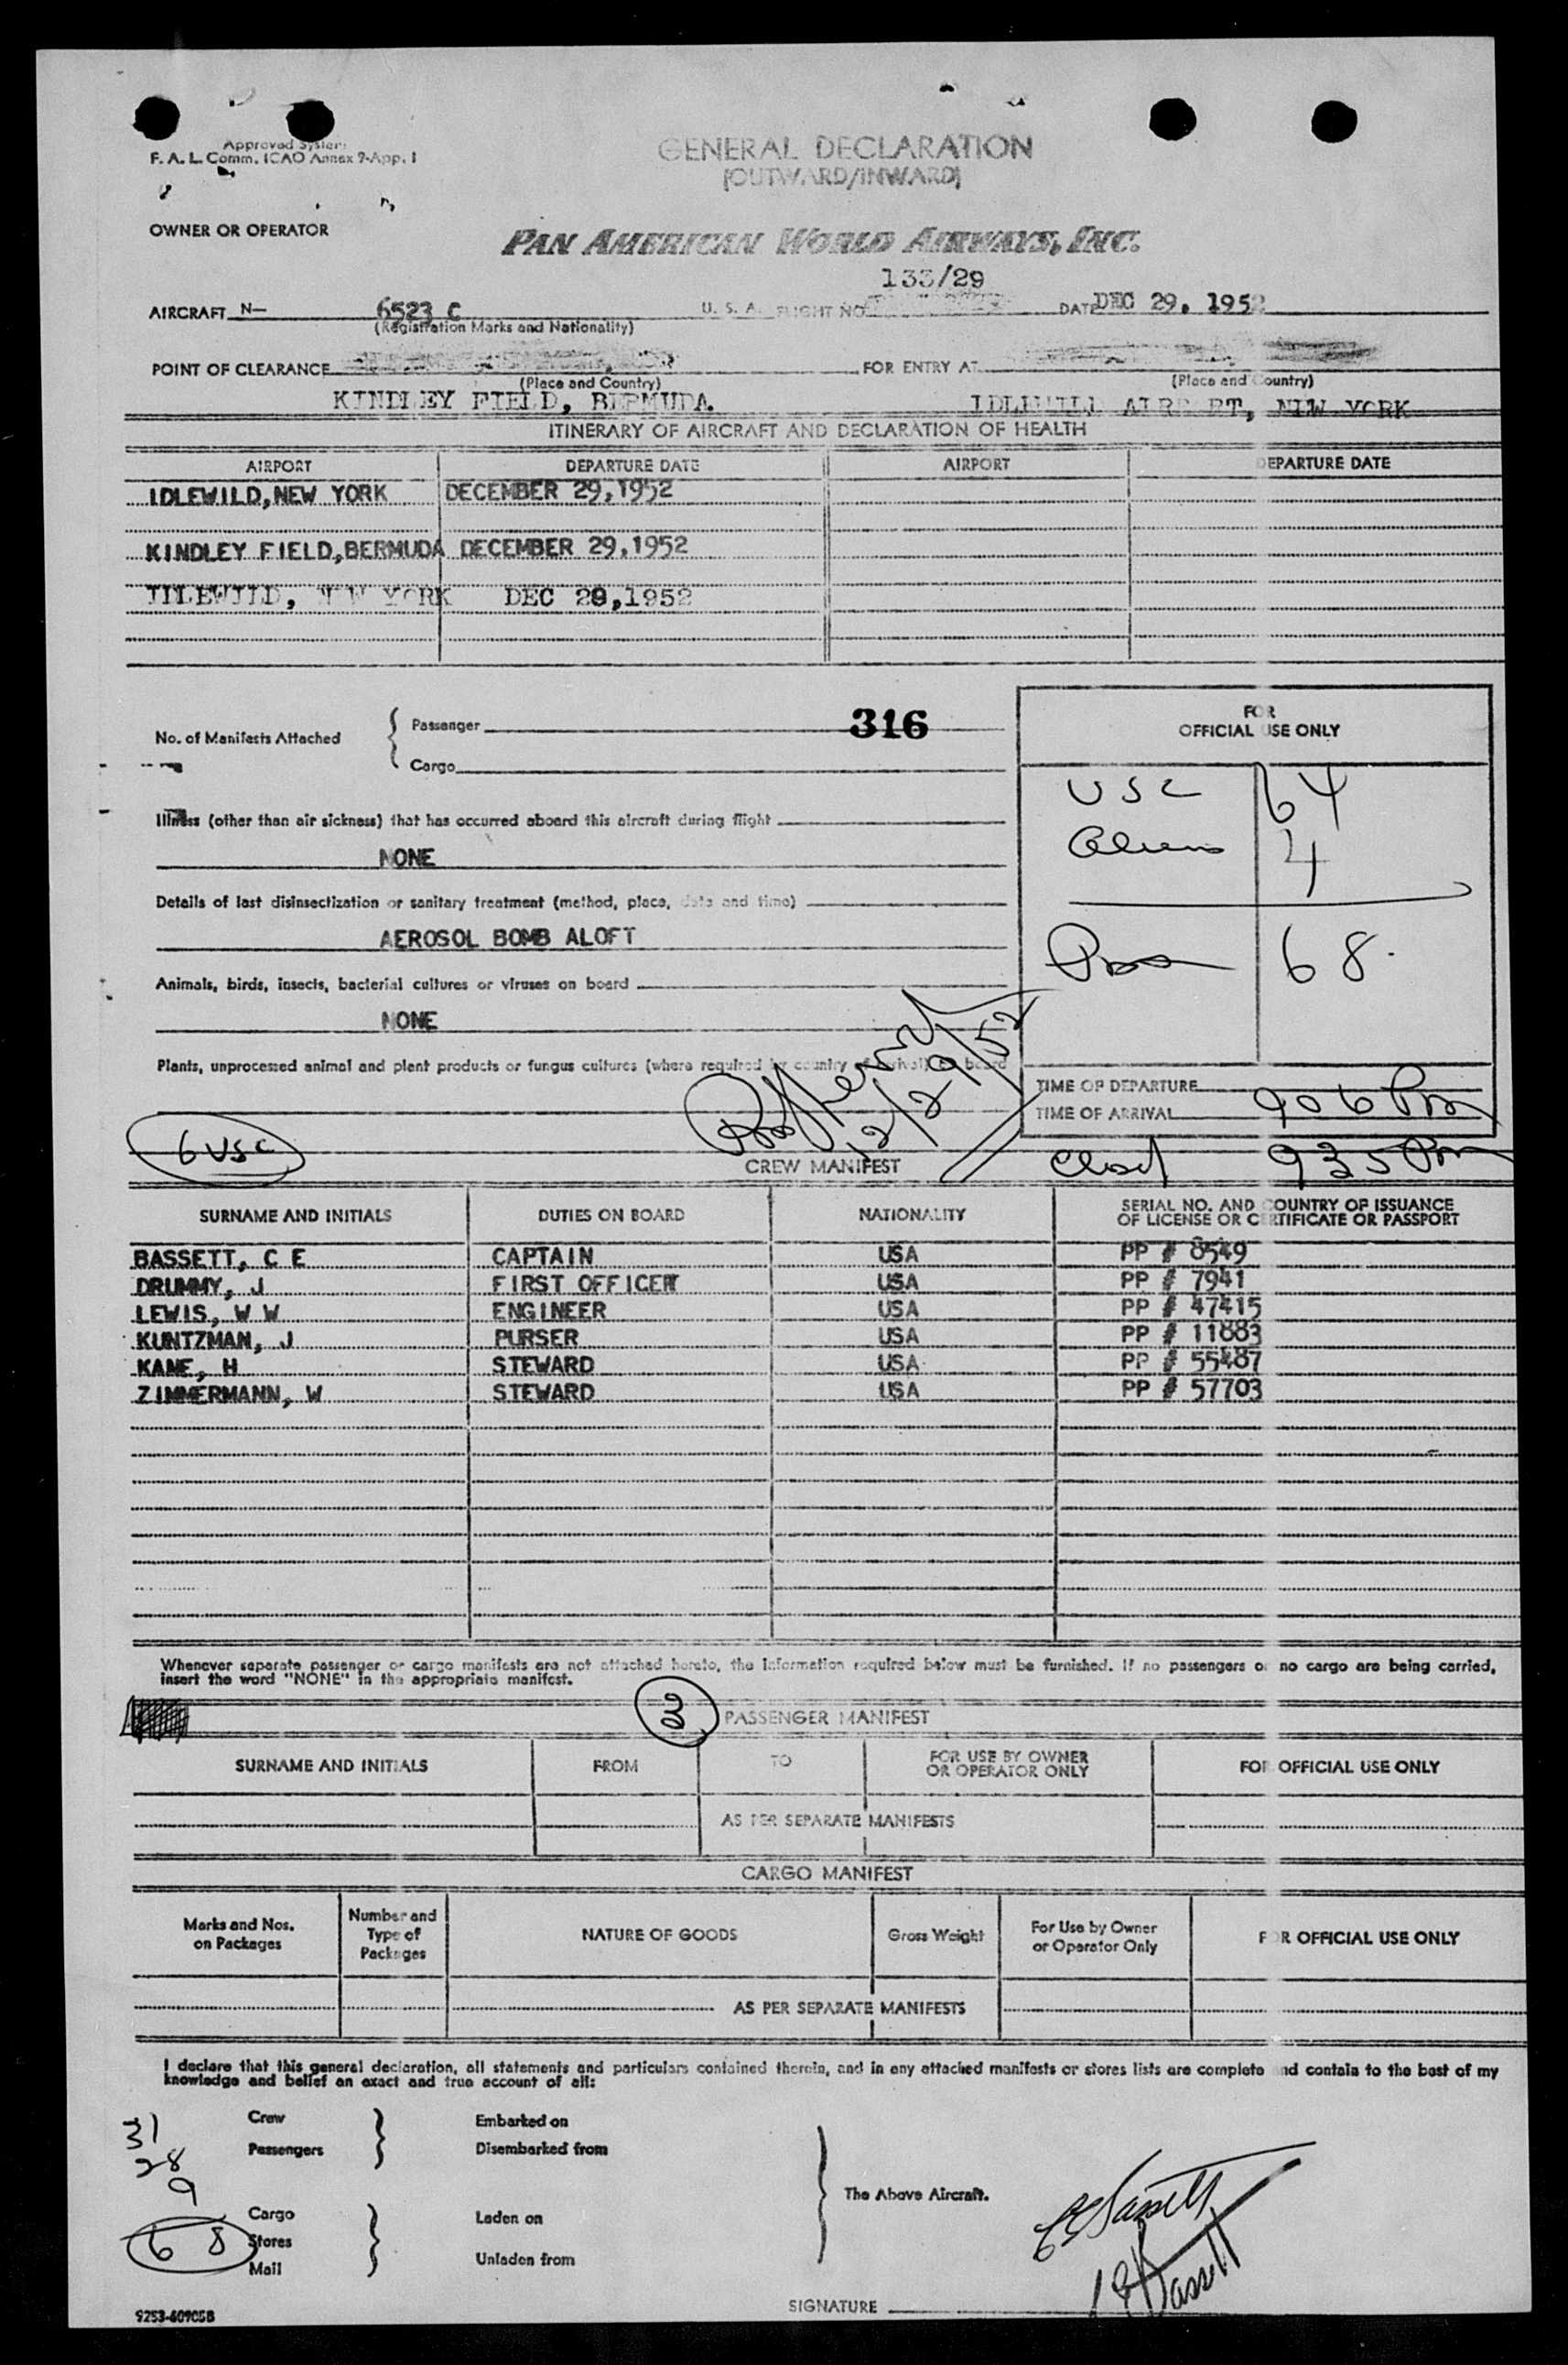 Approved System
F. A. L. Comm. ICAO Annex 9-App. 1
GENERAL DECLARATION
(OUTWARD/INWARD)
OWNER OR OPERATOR
PAN AMERICAN WORLD AIRWAYS, INC.
133/29
AIRCRAFT N— 6523 C U. S. A. FLIGHT NO DATE DEC 29, 1952
(Registration Marks and Nationality)
POINT OF CLEARANCE FOR ENTRY AT
(Place and Country) (Place and Country)
KINDLEY FIELD, BERMUDA IDLEWILD AIRPORT, NEW YORK
ITINERARY OF AIRCRAFT AND DECLARATION OF HEALTH
AIRPORT DEPARTURE DATE AIRPORT DEPARTURE DATE
IDLEWILD, NEW YORK DECEMBER 29, 1952
KINDLEY FIELD, BERMUDA DECEMBER 29, 1952
IDLEWILD, NEW YORK DEC 29, 1952
No. of Manifests Attached { Passenger 316
Cargo
FOR
OFFICIAL USE ONLY
USC 64
Aliens 4
Pass 68
Illness (other than air sickness) that has occurred aboard this aircraft during flight
NONE
Details of last disinsectization or sanitary treatment (method, place, date and time)
AEROSOL BOMB ALOFT
Animals, birds, insects, bacterial cultures or viruses on board
NONE
Plants, unprocessed animal and plant products or fungus cultures (where required by country of arrival) on board
12/29/52
TIME OF DEPARTURE
TIME OF ARRIVAL 906 Pm
6 USC
Closed 935 Pm
CREW MANIFEST
SURNAME AND INITIALS DUTIES ON BOARD NATIONALITY SERIAL NO. AND COUNTRY OF ISSUANCE
OF LICENSE OR CERTIFICATE OR PASSPORT
BASSETT, C E CAPTAIN USA PP # 8549
DRUMMY, J FIRST OFFICER USA PP # 7941
LEWIS, W W ENGINEER USA PP # 47415
KUNTZMAN, J PURSER USA PP # 11883
KANE, H STEWARD USA PP # 55487
ZIMMERMANN, W STEWARD USA PP # 57703
Whenever separate passenger or cargo manifests are not attached hereto, the information required below must be furnished. If no passengers or no cargo are being carried,
insert the word "NONE" in the appropriate manifest.
PASSENGER MANIFEST
SURNAME AND INITIALS FROM TO FOR USE BY OWNER
OR OPERATOR ONLY FOR OFFICIAL USE ONLY
AS PER SEPARATE MANIFESTS
CARGO MANIFEST
Marks and Nos.
on Packages Number and
Type of
Packages NATURE OF GOODS Gross Weight For Use by Owner
or Operator Only FOR OFFICIAL USE ONLY
AS PER SEPARATE MANIFESTS
I declare that this general declaration, all statements and particulars contained therein, and in any attached manifests or stores lists are complete and contain to the best of my
knowledge and belief an exact and true account of all:
31
28
9
68
Crew Embarked on
Passengers Disembarked from
The Above Aircraft.
Cargo Laden on
Stores
Mail Unladen from
C E Bassett
C E Bassett
SIGNATURE
9253-60905B